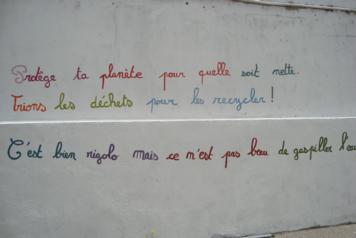 Protège ta planète pour quelle soit nette.
Trions les déchets pour les recycler !
C'est bien rigolo mais ce n'est pas beau de gaspiller l'eau